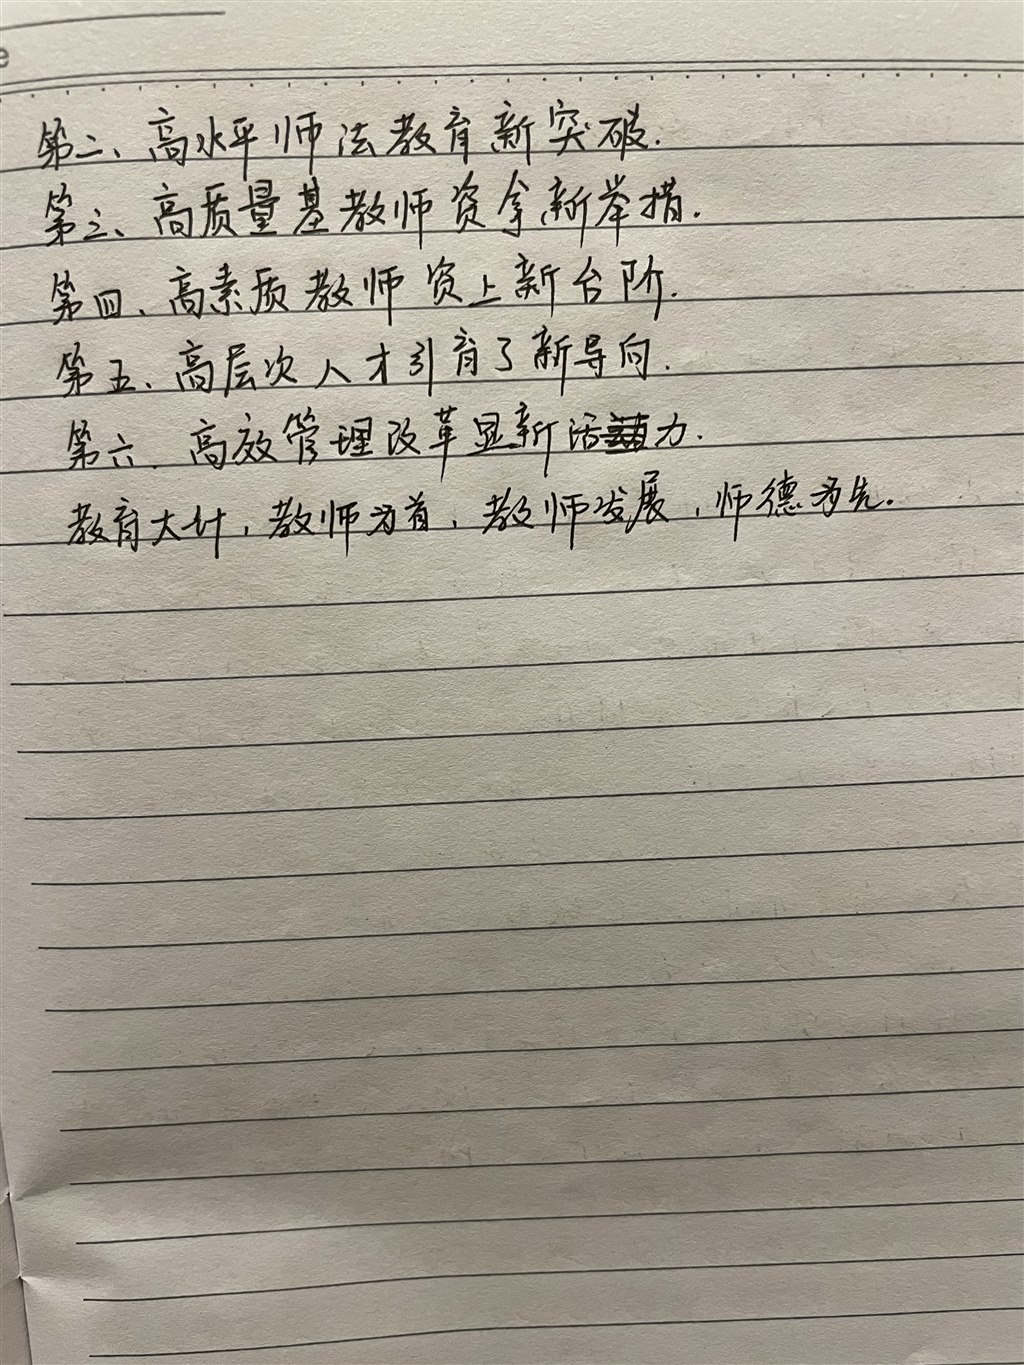 第二、高水平师法教育新突破.
第三、高质量基教师资拿新举措.
第四、高素质教师资上新台阶.
第五、高层次人才引育了新导向.
第六、高效管理改革显新活力.
教育大计,教师为首,教师发展,师德为先.